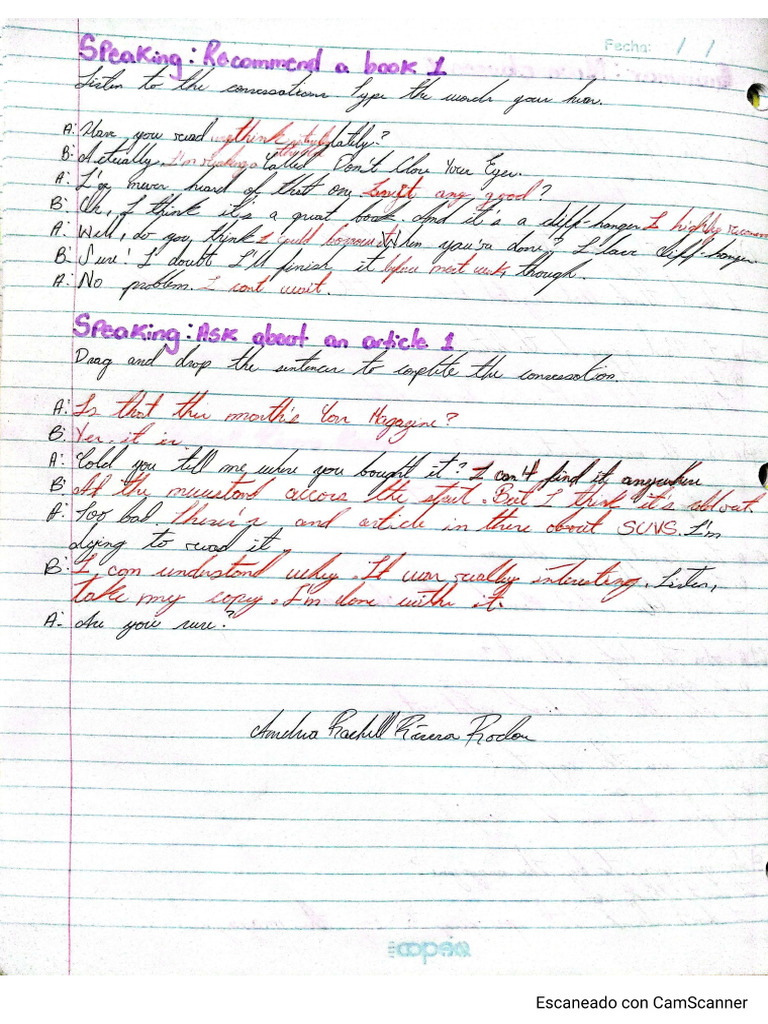 Fecha: / /
Speaking: Recommend a book 1
Listen to the conversations. Type the words your hear.
A: Have you read anything interesting lately?
B: Actually, I'm reading a thriller Called Don't Close Your Eyes.
A: I've never heard of that one. Is it any good?
B: Oh, I think it's a great book. And it's a cliff-hanger I highly recomm
A: Well, do you think I could borrow it When you're done? I love cliff-hanger.
B: Sure! I doubt I'll finish it before next week, though.
A: No problem. I cant wait.
Speaking: Ask about an article 1
Drag and drop the sentences to complite the conversation.
A: Is that this month's Car Magazine?
B: Yes, it is
A: Cold you tell me where you bought it? I can't find it, anywhere
B: At the newsstand accors the start. But I think it's sold out.
A: Too bad. There's and article in there about SUVS. I'm
dying to read it.
B: I can understand why. It was really interesting. Listen,
take my copy. I'm done with it.
A: Are you sure?
Rivera
copan
Escaneado con CamScanner